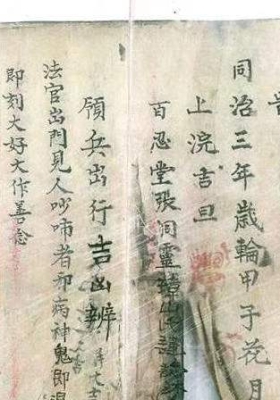 同治三年歲輪甲子花月
上浣吉旦
百忍堂張洞靈
領兵出行吉凶辨
法官出門見人吵啼者邪病神鬼即退
即刻大好大作善念